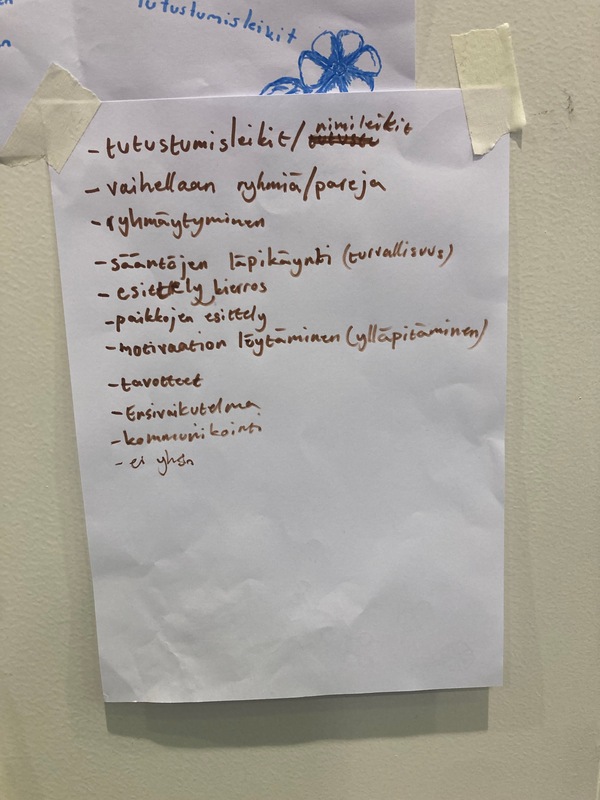 tutustumisleikit
- tutustumisleikit/ nimileikit
- vaihellaan ryhmiä/pareja
- ryhmäytyminen
- sääntöjen läpikäynti (turvallisuus)
- esittely kierros
- paikkojen esittely
- motivaation löytäminen (ylläpitäminen)
- tavotteet
- Ensivaikutelma
- kommunikointi
- ei yksin